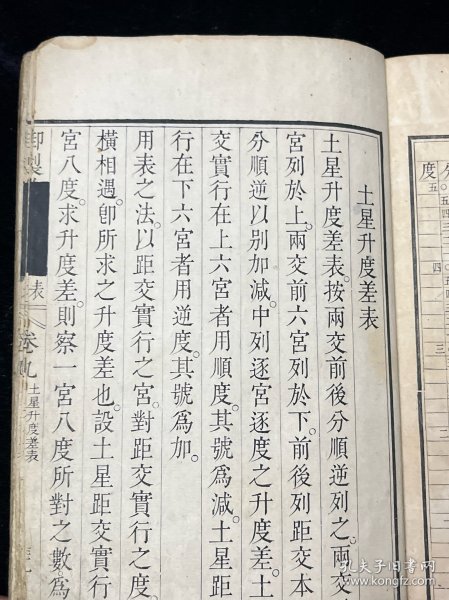 土星升度差表
土星升度差表。按兩交前後分順逆列之。兩交
宮列於上。兩交前六宮列於下。前後列距交本
分順逆以别加減。中列逐宮逐度之升度差。土
交實行在上六宮者用順度。其號爲減。土星距
行在下六宮者用逆度。其號爲加。
用表之法。以距交實行之宮。對距交實行之度。
橫相遇。卽所求之升度差也。設土星距交實行
宮八度。求升度差。則察一宮八度所對之數。爲
御製
表
卷九
土星升度差表
度
孔夫子旧书网